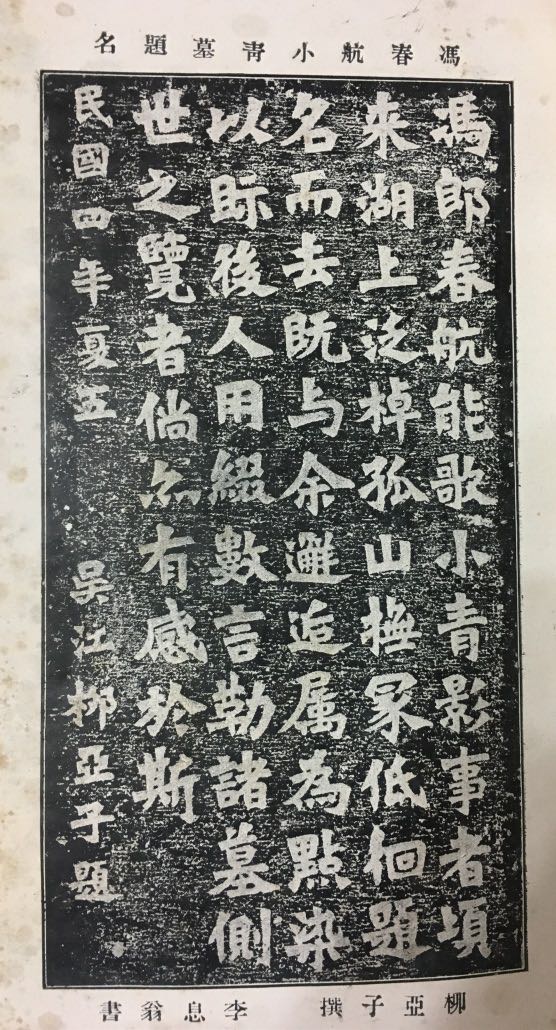 馮春航小靑墓題名
馮郎春航能歌小青影事者頃
来湖上泛棹孤山撫冢低徊題
名而去既与余邂逅属為點染
以眎後人用綴數言勒諸墓側
世之覽者倘亦有感於斯
民國四年夏五 吳江柳亞子題
柳亞子撰 李息翁書